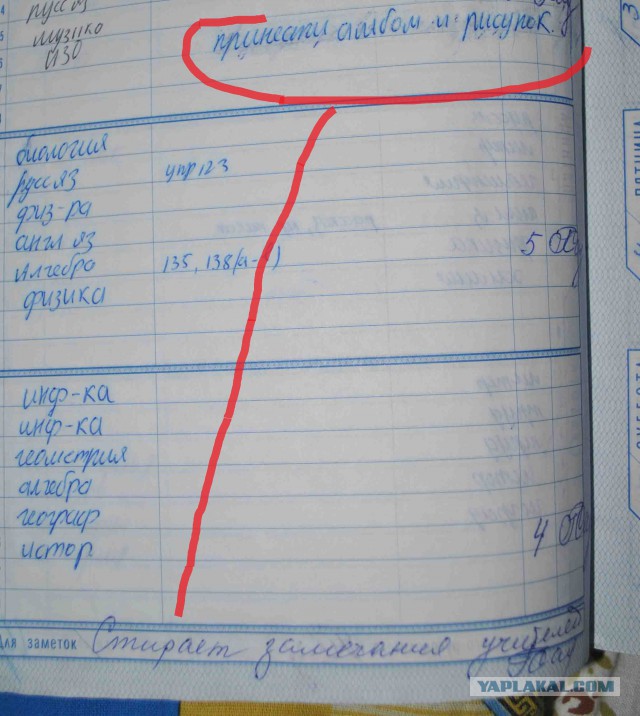 русс яз
музыка
ИЗО
принести альбом и рисунок.
биология
русс яз упр 123
физ-ра
англ яз
алгебра 135, 138(а- ) 5
физика
инф-ка
инф-ка
геометрия
алгебра
географ
истор. 4
Для заметок Стирает замечания учителей
ПЯТНИЦА
СУББОТА
YAPLAKAL.COM